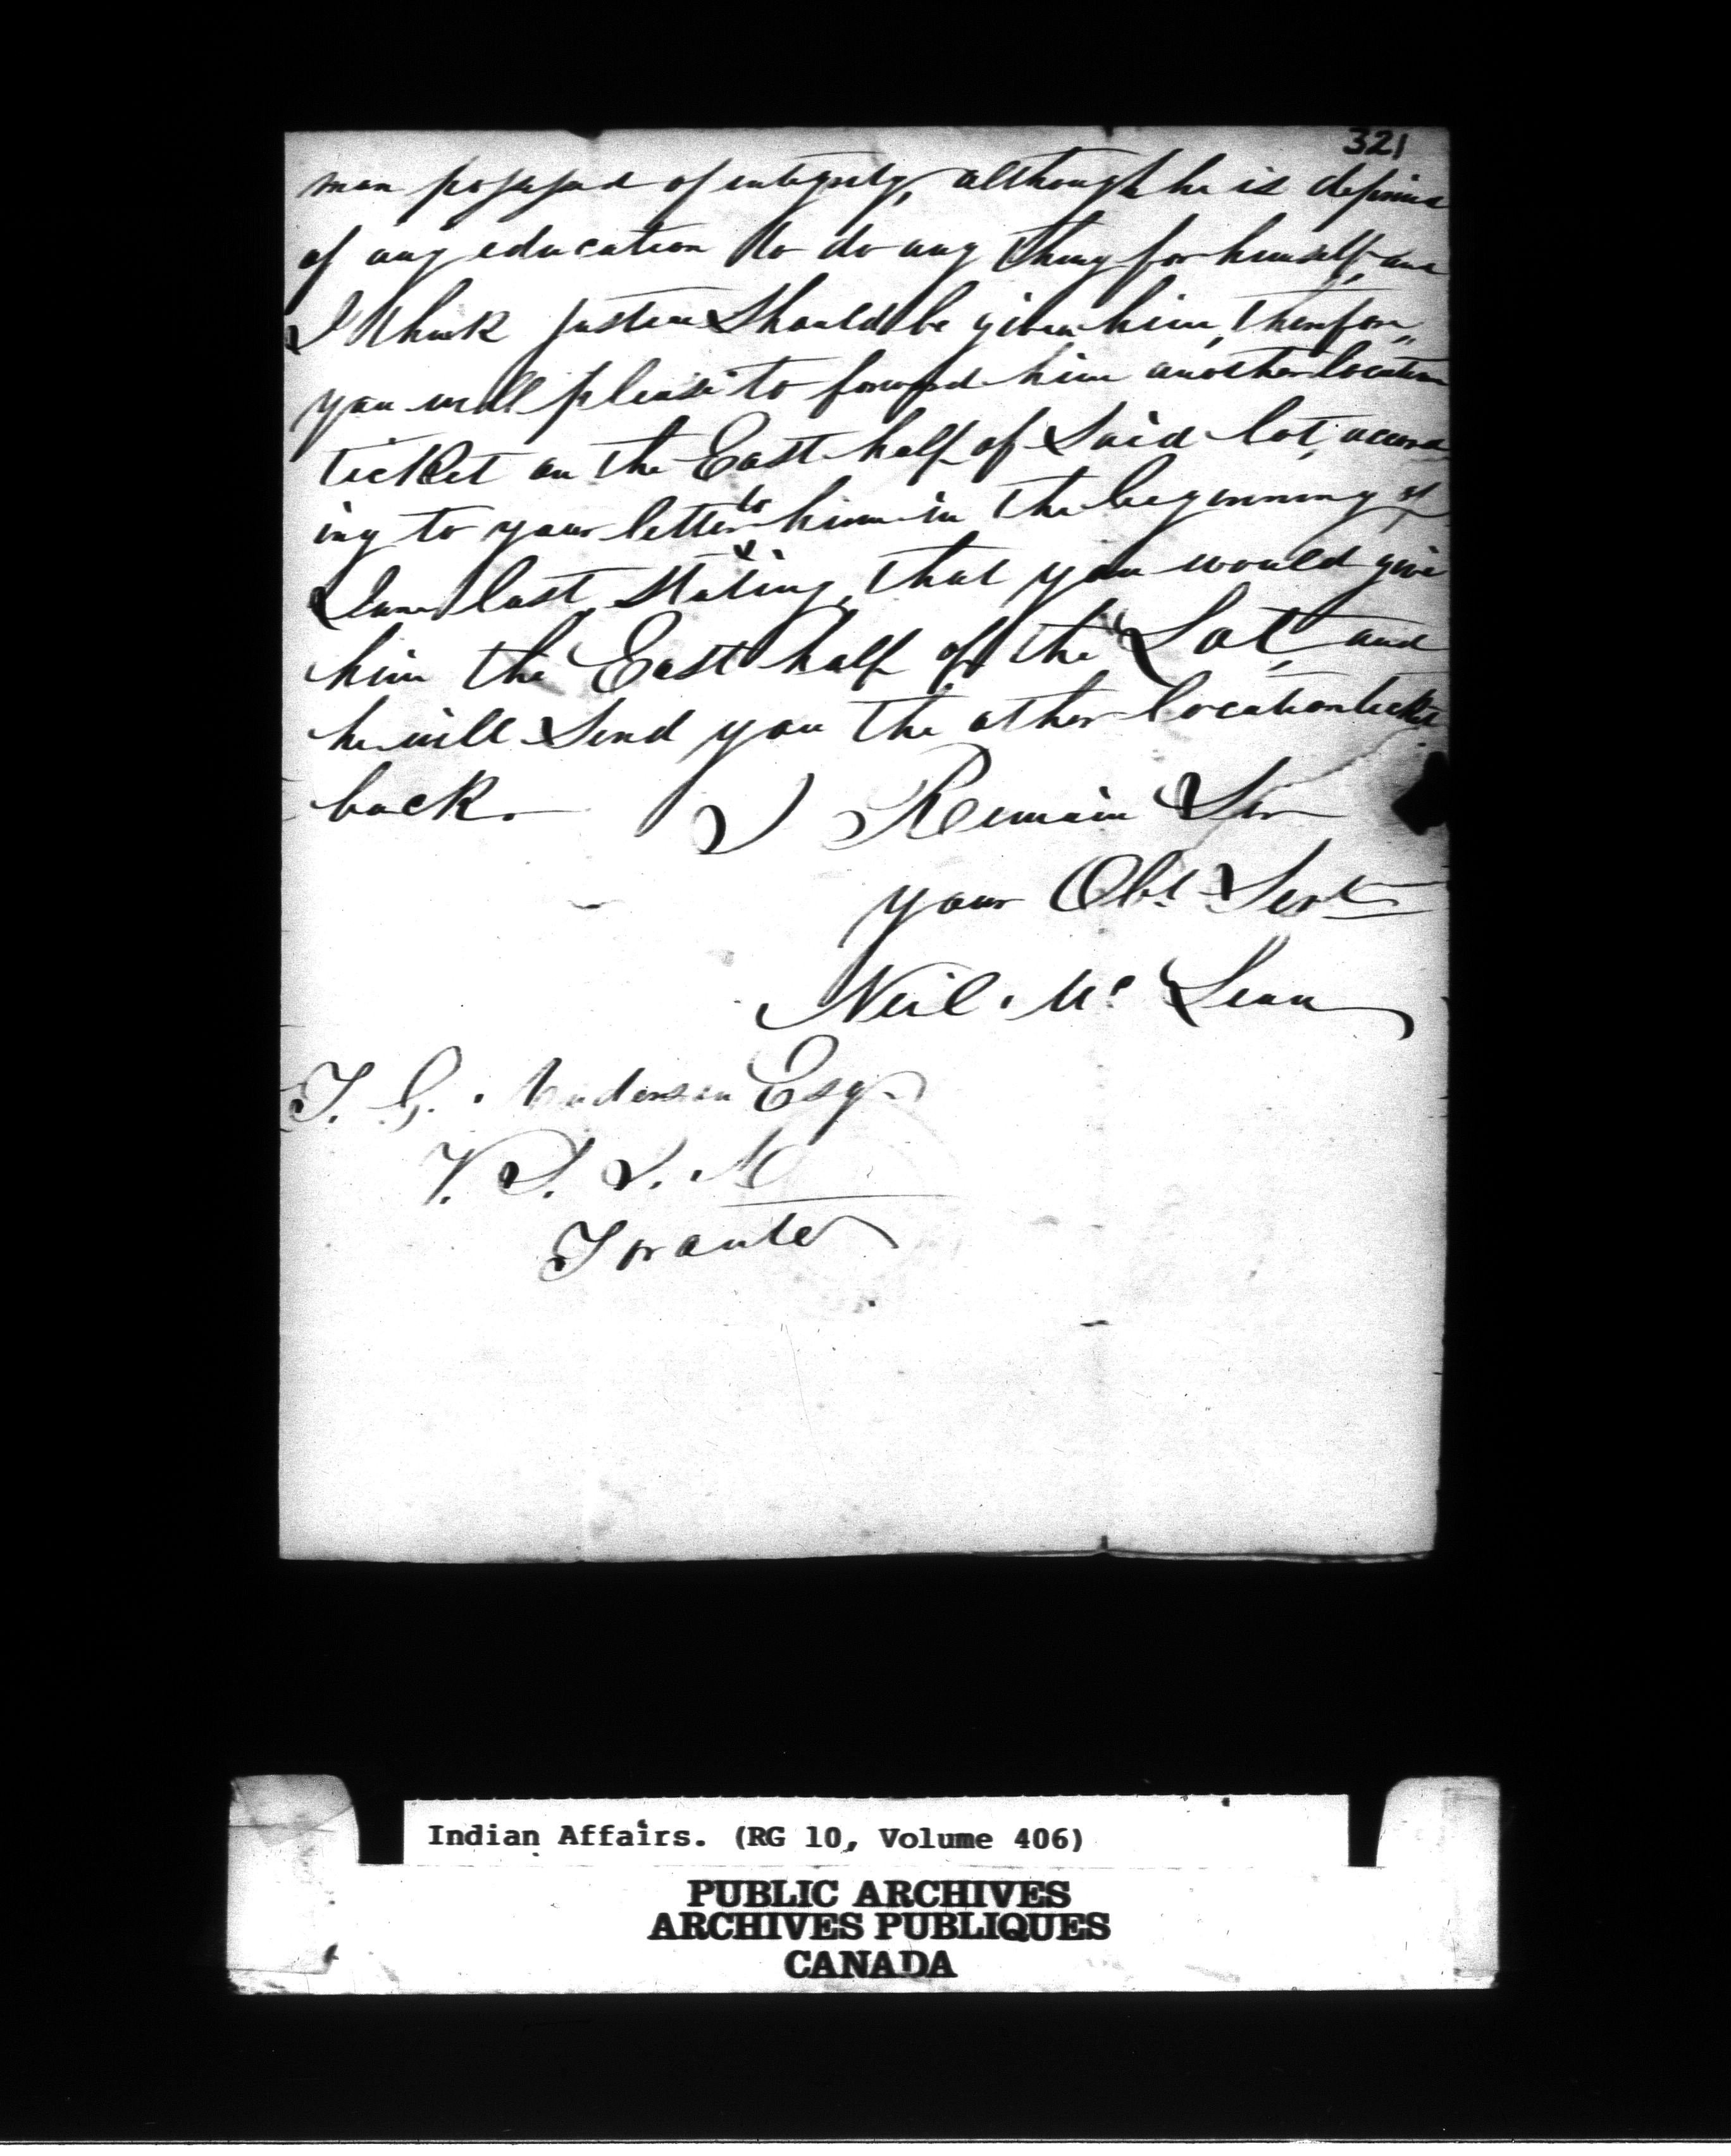 321
man possessed of integrity, although he is
of any education to do any thing for himself, and
I think Justice Should be given him, therefore,
you will please to forward him another location
ticket on the East half of Said lot, accord
ing to your letter to him in the beginning of
June last, Stating, that you would give
him the East half of the Lot, and
he will Send you the other location ticket
back. I Remain Sir
your Obt Servt
Neil Mc Lean
T. G. Anderson Esqr
V. S. I. A
Toronto
Indian Affairs. (RG 10, Volume 406)
PUBLIC ARCHIVES
ARCHIVES PUBLIQUES
CANADA